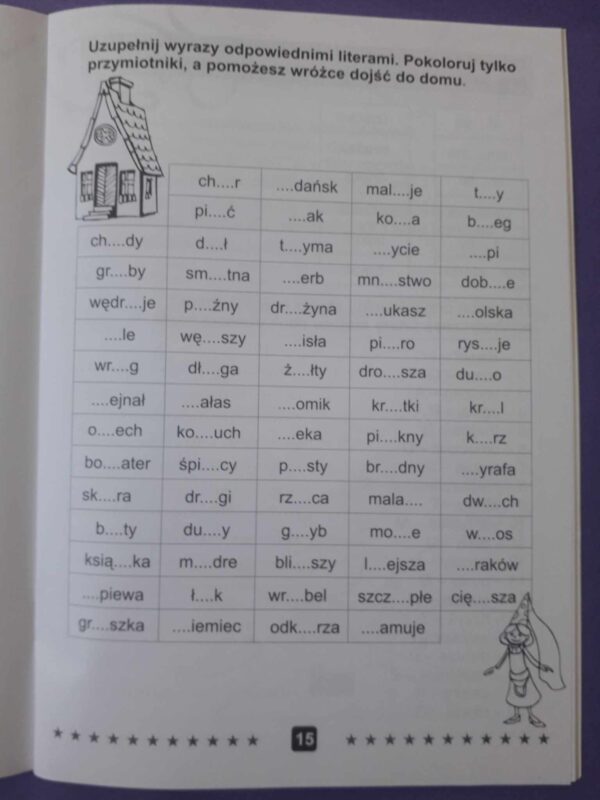 Uzupełnij wyrazy odpowiednimi literami. Pokoloruj tylko
przymiotniki, a pomożesz wróżce dojść do domu.
ch....r ....dańsk mal....je t....y
pi....ć ....ak ko....a b....eg
ch....dy d....ł t....yma ....ycie ....pi
gr....by sm....tna ....erb mn....stwo dob....e
wędr....je p....źny dr....żyna ....ukasz ....olska
....le wę....szy ....isła pi....ro rys....je
wr....g dł....ga ż....łty dro....sza du....o
....ejnał ....ałas ....omik kr....tki kr....l
o....ech ko....uch ....eka pi....kny k....rz
bo....ater śpi....cy p....sty br....dny ....yrafa
sk....ra dr....gi rz....ca mala.... dw....ch
b....ty du....y g....yb mo....e w....os
ksią....ka m....dre bli....szy l....ejsza ....raków
....piewa ł....k wr....bel szcz....płe cię....sza
gr....szka ....iemiec odk....rza ....amuje
15